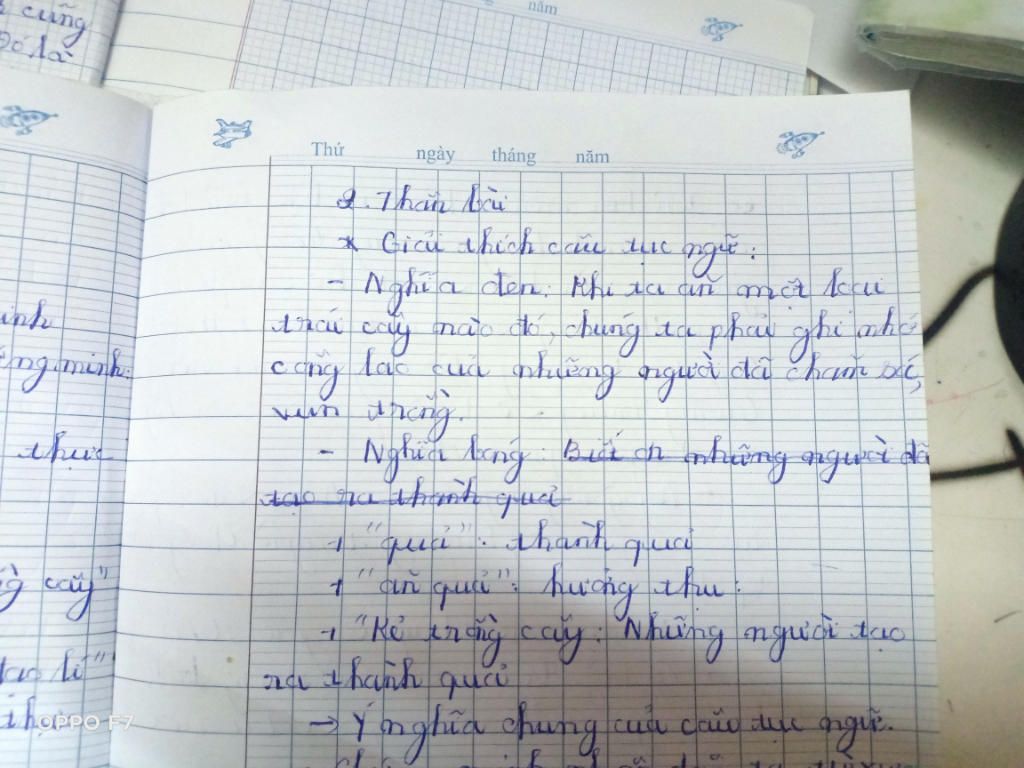 cũng
Đó là
năm
Thứ ngày tháng năm
2. Thân bài
* Giải thích câu tục ngữ:
- Nghĩa đen: Khi ta ăn một loại
trái cây nào đó, chúng ta phải ghi nhớ
công lao của những người đã chăm sóc,
vun trồng.
- Nghĩa bóng: Biết ơn những người đã
tạo ra thành quả
+ "quả": thành quả
+ "ăn quả": hưởng thụ:
+ "Kẻ trồng cây: Những người tạo
ra thành quả
→ Ý nghĩa chung của câu tục ngữ.
minh:
thực
cây"
OPPO F7